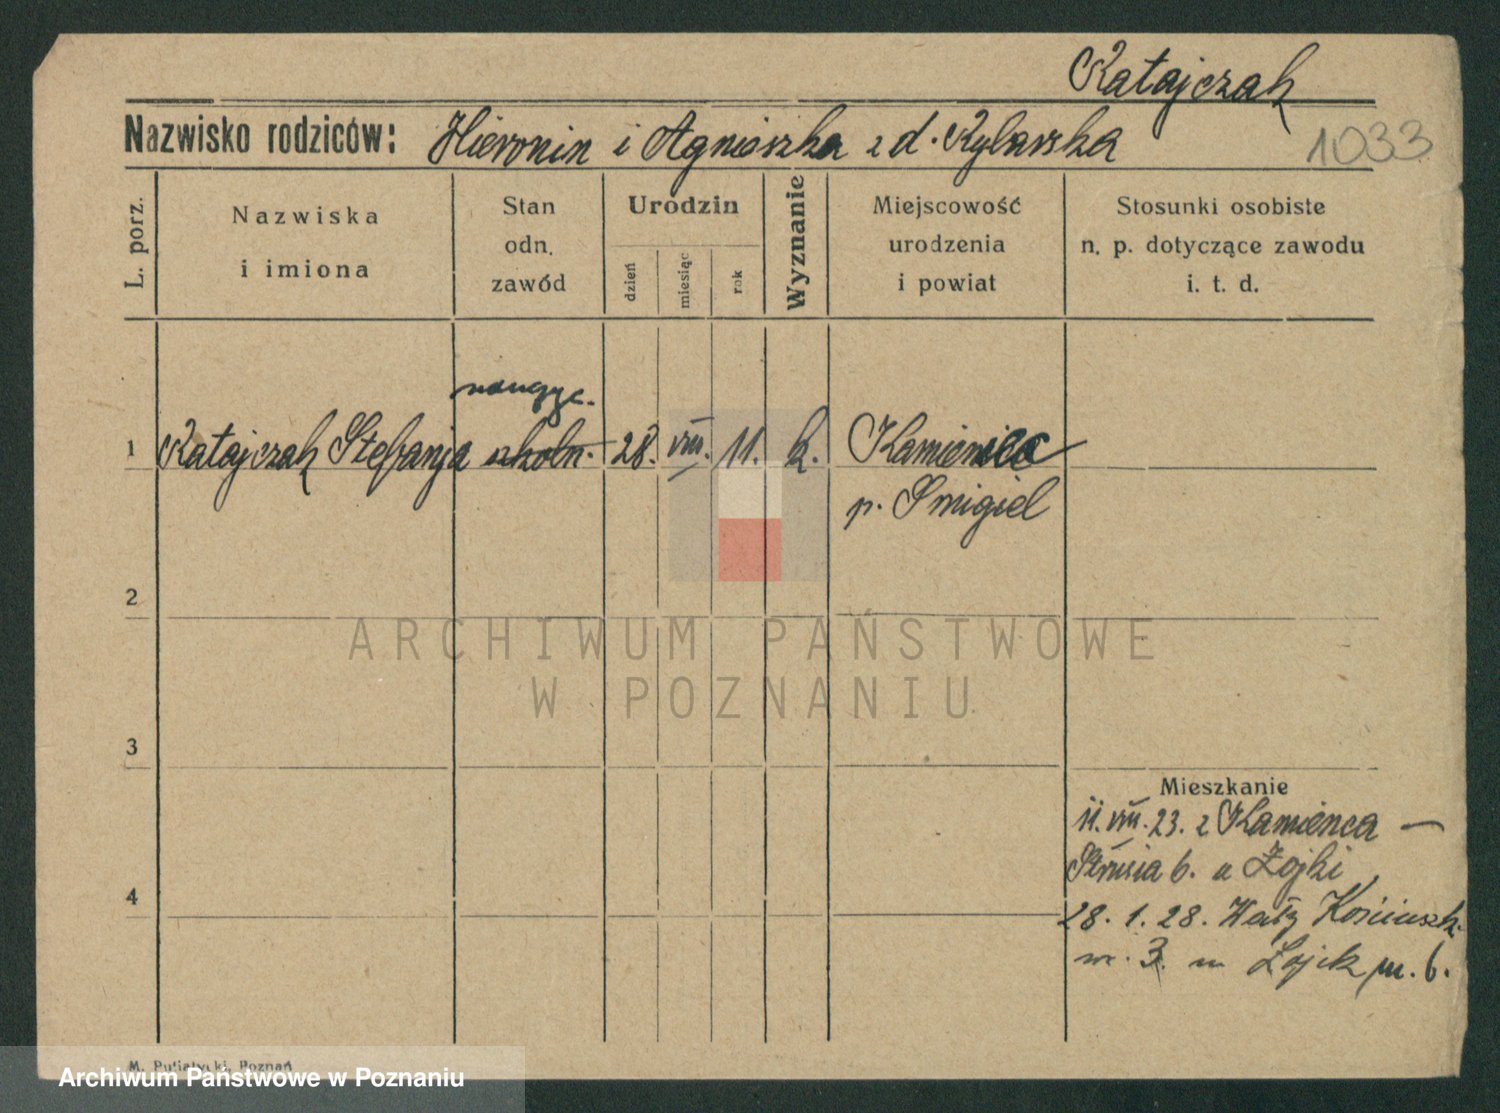 Ratajczak
Nazwisko rodziców: Hieronin i Agnieszka z d. Rylarska
1033
L. porz.
Nazwiska
i imiona
Stan
odn.
zawód
Urodzin
dzień
miesiąc
rok
Wyznanie
Miejscowość
urodzenia
i powiat
Stosunki osobiste
n. p. dotyczące zawodu
i. t. d.
nauczyc.
1 Ratajczak Stefanja szkoln. 28. VIII. 11. k. Kamieniec
p. Smigiel
2
ARCHIWUM PAŃSTWOWE
W POZNANIU
3
Mieszkanie
11. VIII. 23. z Kamieńca —
Strusia 6. u Zojki
4
28. 1. 28. Wały Kościuszk.
nr. 3. u Lojek m. 6.
M. Putiatycki, Poznań
Archiwum Państwowe w Poznaniu